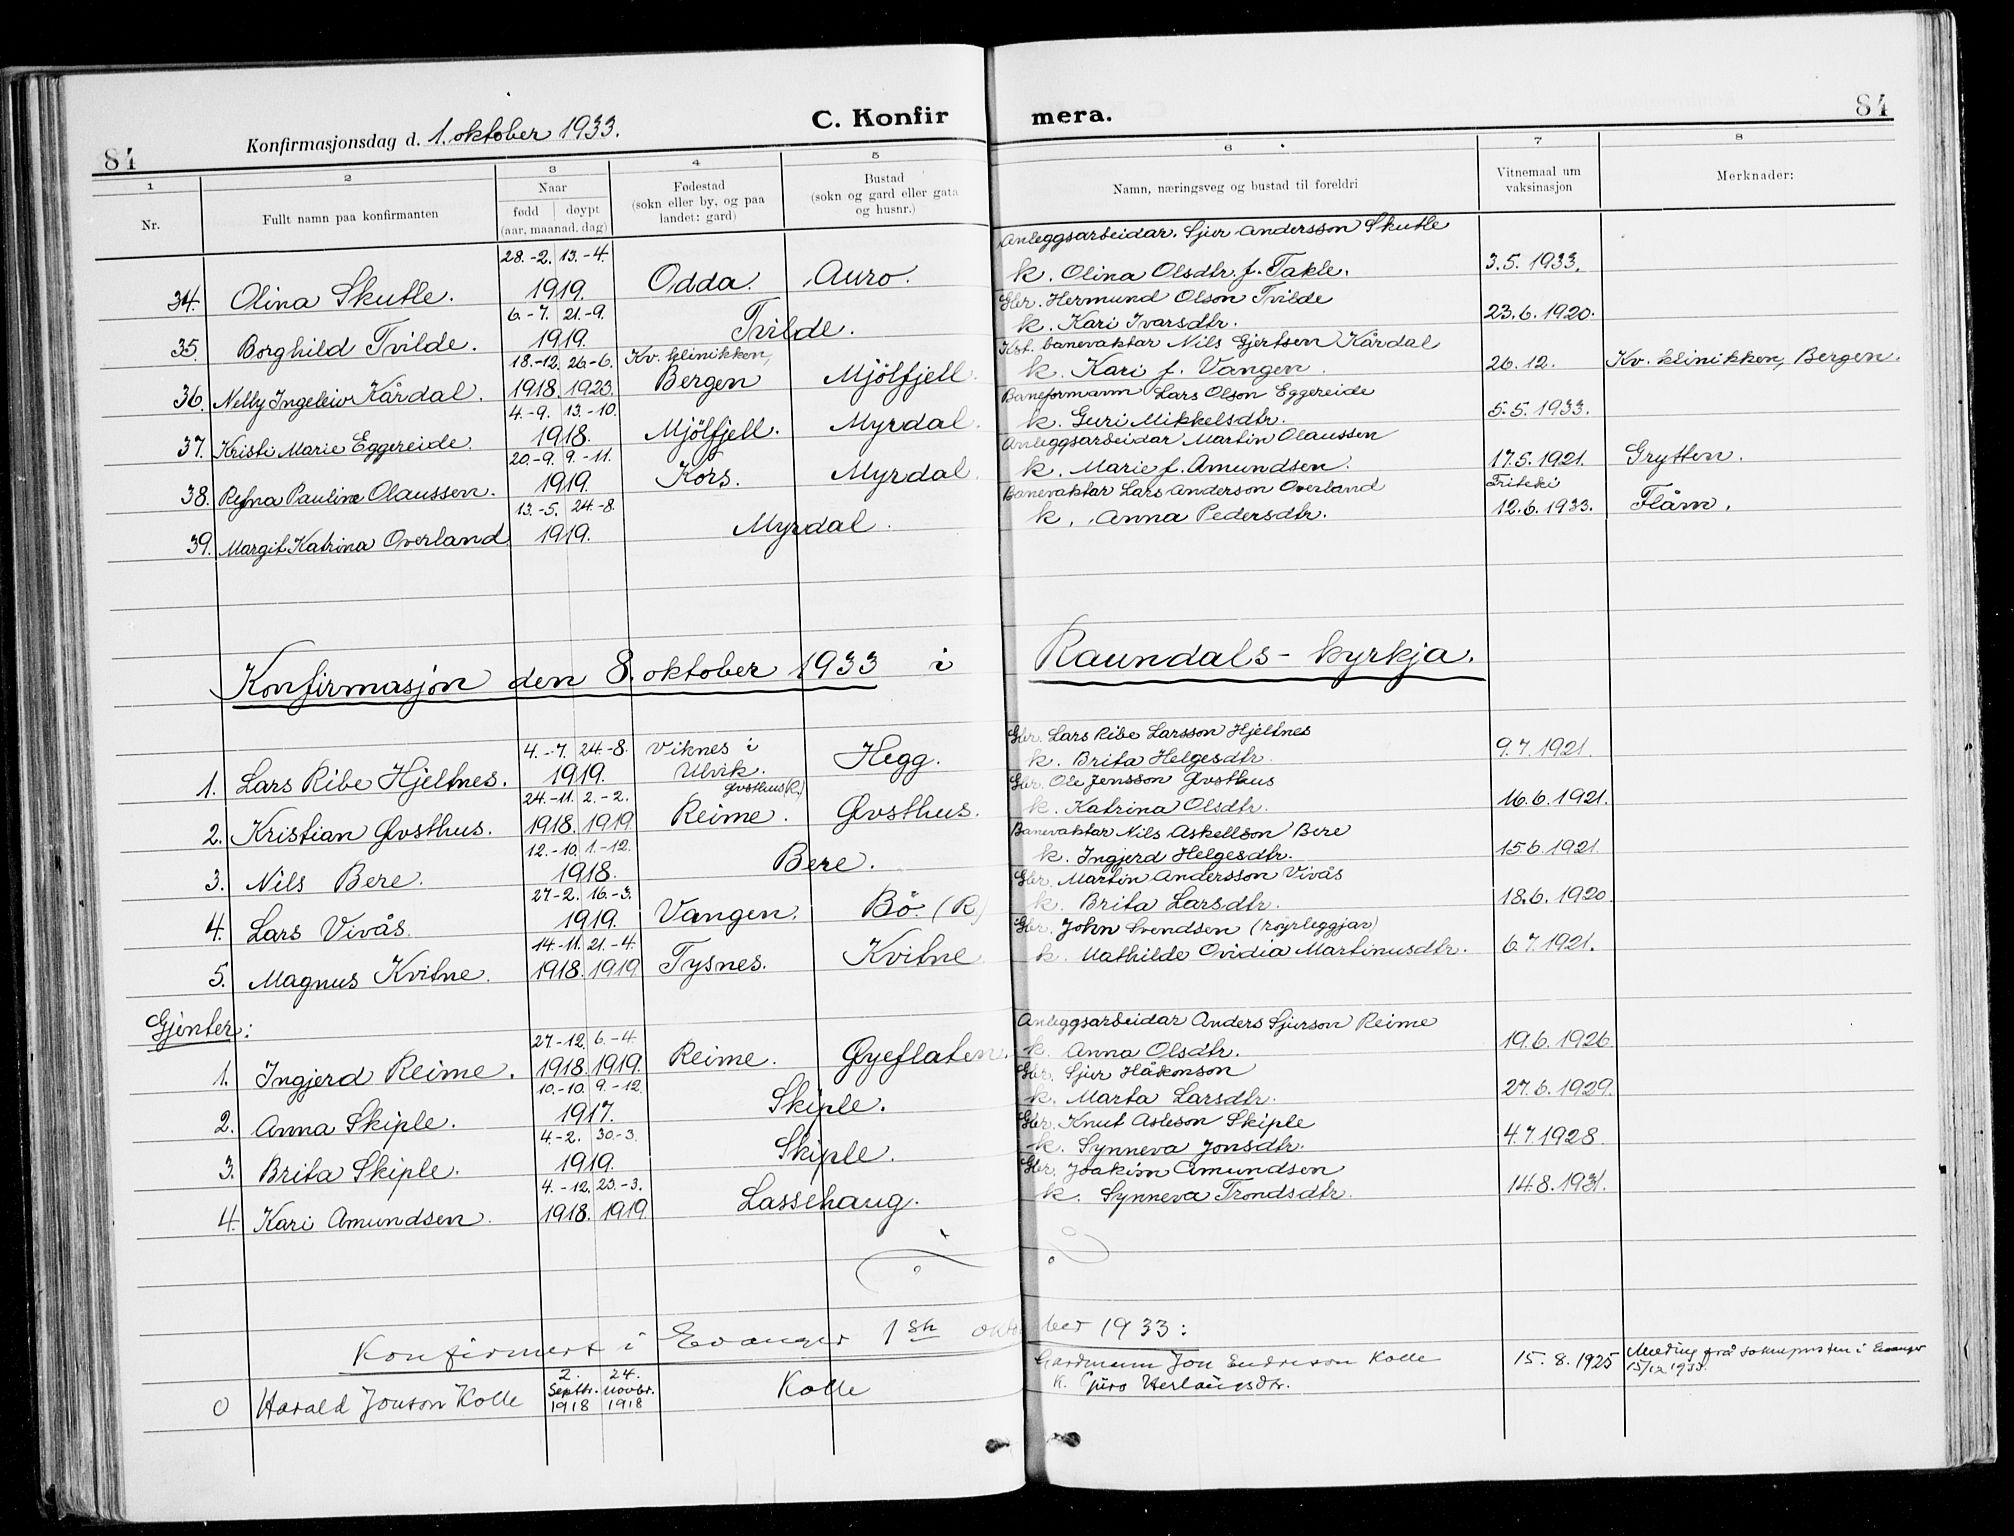 84
Konfirmasjonsdag d. 1. oktober 1933.
C. Konfir mera.
84
1 2 3 4 5 6 7 8
Nr.
Fullt namn paa konfirmanten
Naar
fødd døypt
(aar, maanad, dag)
Fødestad
(sokn eller by, og paa
landet: gard)
Bustad
(sokn og gard eller gata
og husnr.)
Namn, næringsveg og bustad til foreldri
Vitnemaal um
vaksinasjon
Merknader:
28.-2. 13.-4. Anleggsarbeidar. Sjur Andersson Skutle
34. Olina Skutle. 1919. Odda. Auro. k. Olina Olsdtr. f. Takle. 3.5.1933.
6.-7. 21.-9. Gbr. Hermund Olson Tvilde
35. Borghild Tvilde. 1919. Tvilde. k. Kari Ivarsdtr. 23.6.1920.
18.-12. 26.-6. Kv. klinikken, Kst. banevaktar Nils Gjertsen Kårdal
36. Nelly Ingeleiv Kårdal. 1918. 1923. Bergen Mjölfjell. k. Kari f. Vangen. 26.12. Kv. klinikken, Bergen.
4.-9. 13.-10. Baneformann Lars Olson Eggereide
37. Kristi Marie Eggereide. 1918. Mjölfjell. Myrdal. k. Guri Mikkelsdtr. 5.5.1933.
20.-9. 9.-11. Anleggsarbeidar Martin Olaussen
38. Regna Pauline Olaussen. 1919. Kors. Myrdal. k. Marie f. Amundsen. 17.5.1921. Grytten.
13.-5. 24.-8. Banevaktar Lars Anderson Overland
39. Margit Katrina Overland 1919. Myrdal. k. Anna Pedersdtr. 12.6.1933. Flåm.
Konfirmasjon den 8. oktober 1933 i Raundals-kyrkja.
4.-7. 24.-8. Viknes i Gbr. Lars Ribe Larsson Hjeltnes
1. Lars Ribe Hjeltnes. 1919. Ulvik. Hegg. k. Brita Helgesdtr. 9.7.1921.
24.-11. 2.-2. Øvsthus (R.) Gbr. Ole Jensson Øvsthus
2. Kristian Øvsthus. 1918. 1919. Reime. Øvsthus. k. Katrina Olsdtr. 16.6.1921.
12.-10. 1.-12. Banevaktar Nils Askellson Bere
3. Nils Bere. 1918. Bere. k. Ingjerd Helgesdtr. 15.6.1921.
27.-2. 16.-3. Gbr. Martin Andersson Vivås
4. Lars Vivås. 1919. Vangen. Bö. (R) k. Brita Larsdtr. 18.6.1920.
14.-11. 21.-4. Gbr. John Svendsen (röyrleggjar)
5. Magnus Kvitne. 1918. 1919 Tysnes. Kvitne k. Mathilde Ovidia Martinusdtr. 6.7.1921.
Gjenter:
27.-12. 6.-4. Anleggsarbeidar Anders Sjurson Reime
1. Ingjerd Reime. 1918. 1919. Reime. Øyeflaten. k. Anna Olsdtr. 19.6.1926.
10.-10. 9.-12. Gbr. Sjur Håkonson
2. Anna Skiple. 1917. Skiple. k. Marta Larsdtr. 27.6.1929.
4.-2. 30.-3. Gbr. Knut Asleson Skiple
3. Brita Skiple. 1919. Skiple. k. Synneva Jonsdtr. 4.7.1928.
4.-12. 23.-3. Gbr. Joakim Amundsen
4. Kari Amundsen. 1918. 1919. Lassehaug. k. Synneva Trondsdtr. 14.8.1931.
Konfirmert i Evanger 1ste oktober 1933:
2. 24. Gardmann Jon Endreson Kolle 15.8.1925 Melding frå soknepresten i Evanger
0 Harald Jonson Kolle Septbr. Novbr. Kolle k. Guro Herlaugsdtr. 15/12 1933.
1918 1918